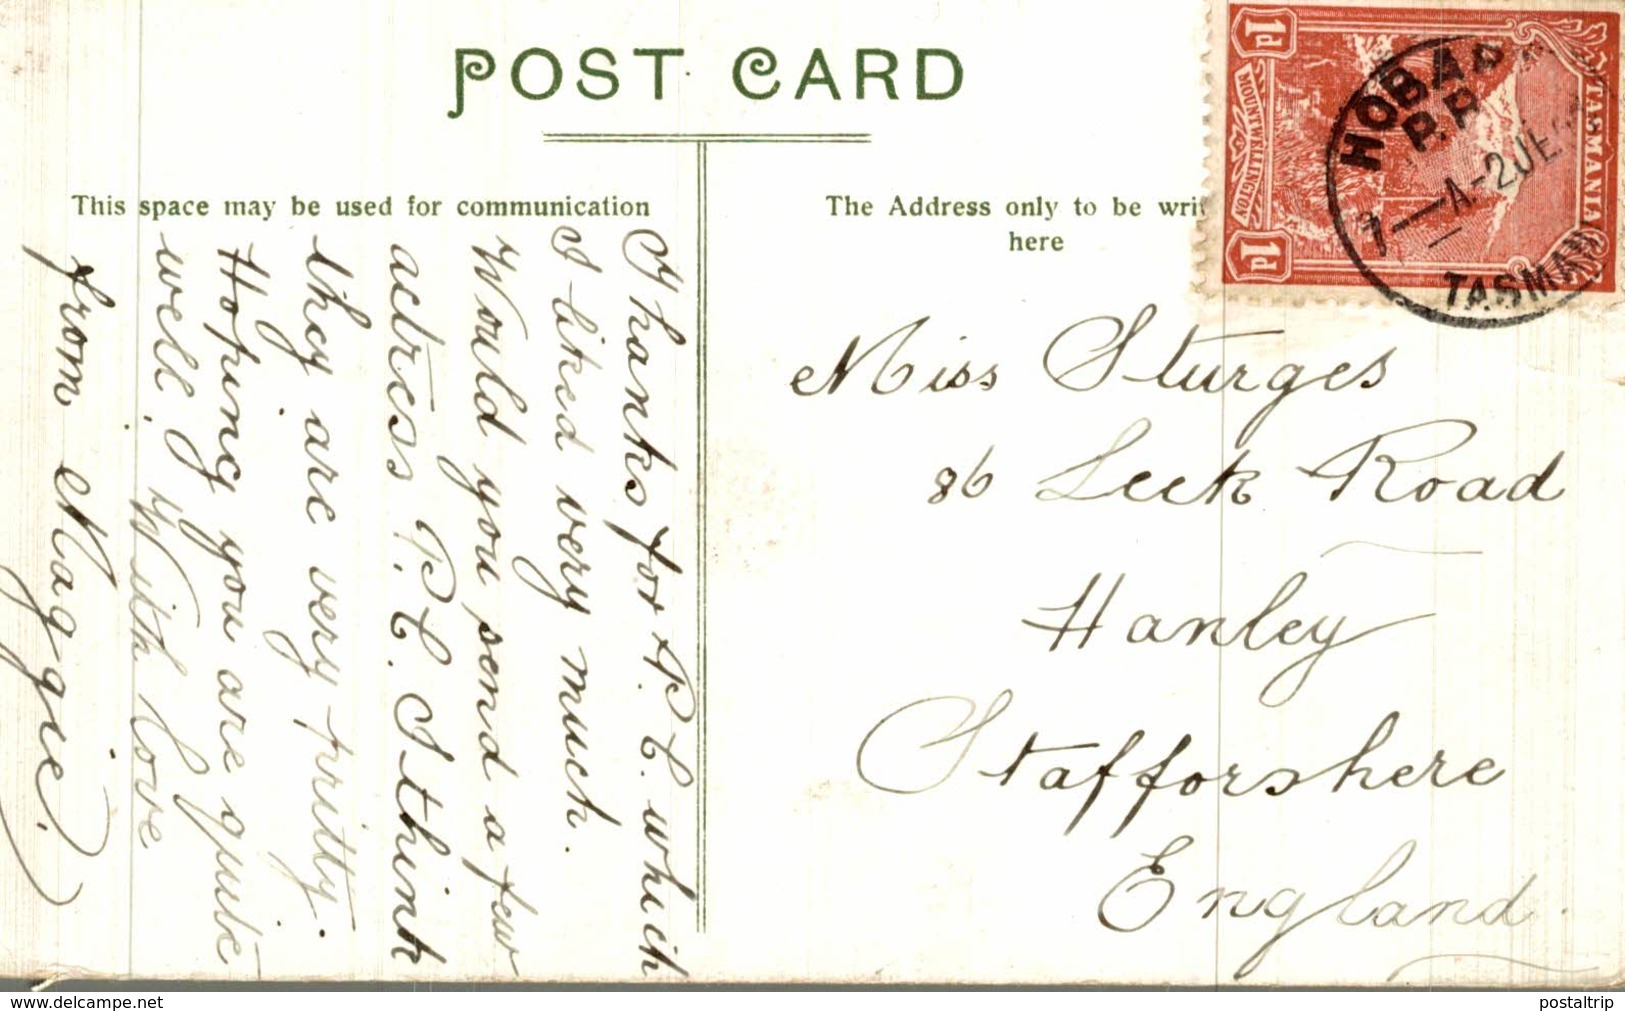 POST CARD
This space may be used for communication
The Address only to be writ
here
1d
TASMANIA
MOUNT WELLINGTON
1d
HOBART
P.P.
7—A-2JE
TASMAN
Thanks for P.C. which
I liked very much.
Would you send a few
actress P.C. I think
they are very pritty.
Hoping you are quite
well. With love
from Maggie.
Miss Sturges
86 Leek Road
Hanley
Stafforshere
England.
www.delcampe.net
postaltrip